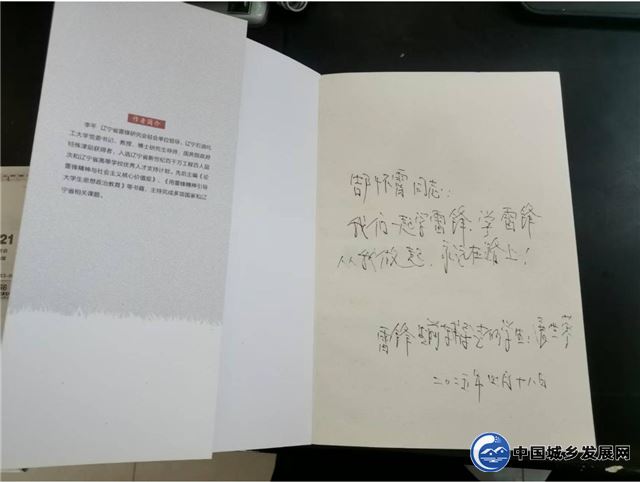 作者简介
李平 辽宁省雷锋研究会轮会单位领导，辽宁石油化
工大学党委书记、教授、博士研究生导师，国务院政府
特殊津贴获得者，入选辽宁省新世纪百千万工程百人层
次和辽宁省高等学校优秀人才支持计划。先后主编《论
雷锋精神与社会主义核心价值观》、《用雷锋精神引导
大学生思想政治教育》等书籍，主持完成多项国家和辽
宁省相关课题。
21
怀霄同志：
我们一起学雷锋，学雷锋
从我做起，永远在路上！
雷锋生前辅导的学生：
二〇二五年四月十八日
中国城乡发展网